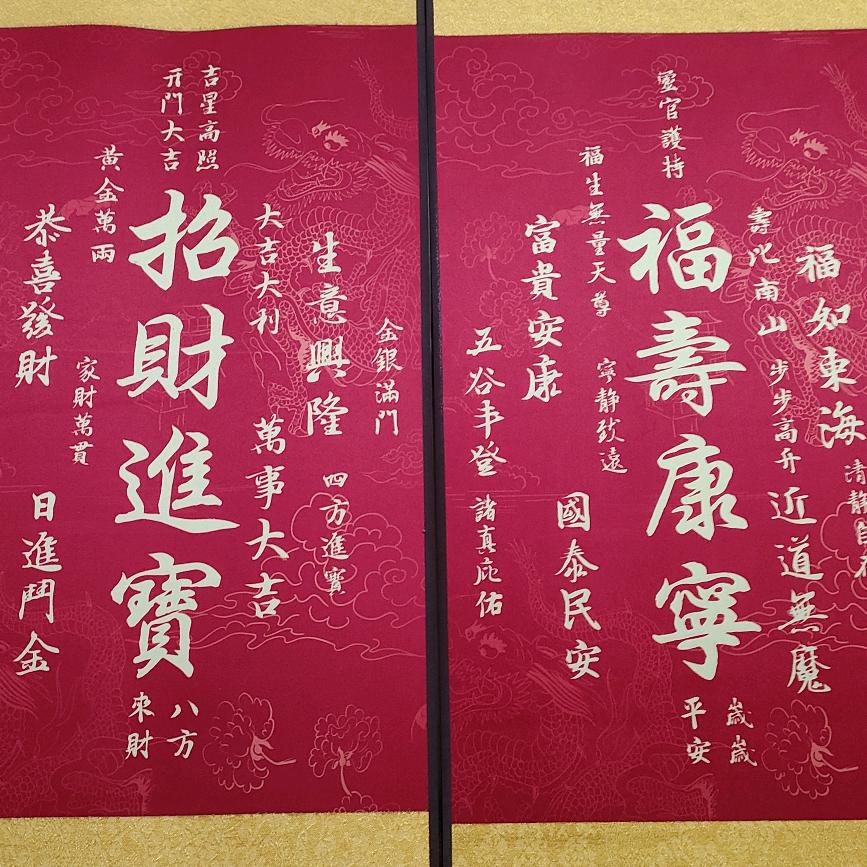 吉星高照
开門大吉
黃金萬兩
恭喜發財
招財進寶
大吉大利
生意興隆
金銀滿門
家財萬貫
萬事大吉
四方進寶
日進鬥金
八方
來財
靈官護持
福生無量天尊
富貴安康
福壽康寧
壽比南山
福如東海
五谷丰登
寧静致遠
步步高升
清静自在
諸真庇佑
國泰民安
近道無魔
歲歲
平安